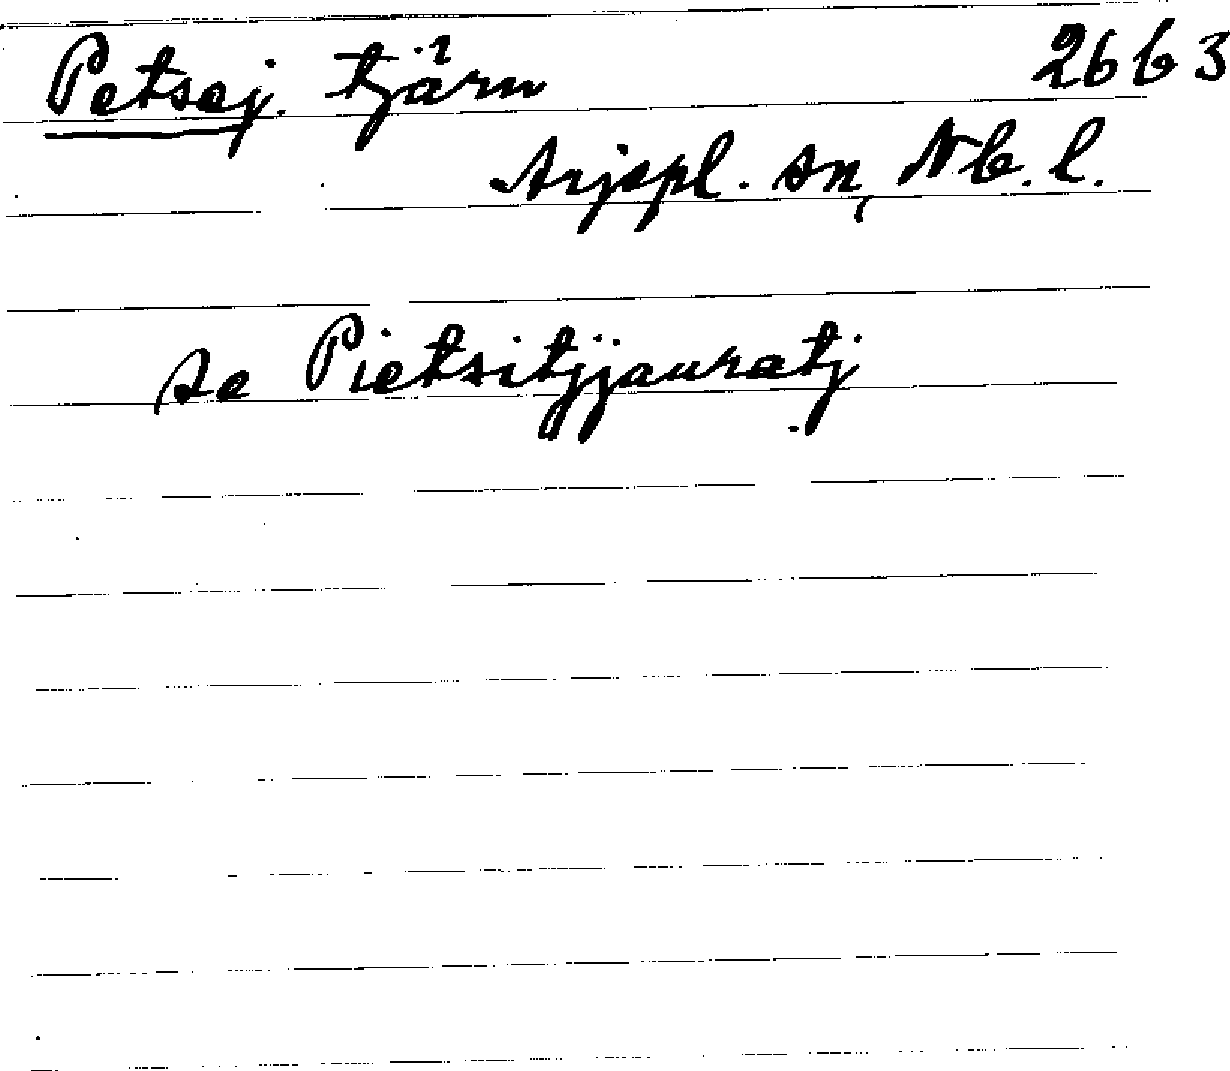 Petsej. tjärn 26b3
Arjepl. sn, Nb. l.
se Pietsitjjauratj